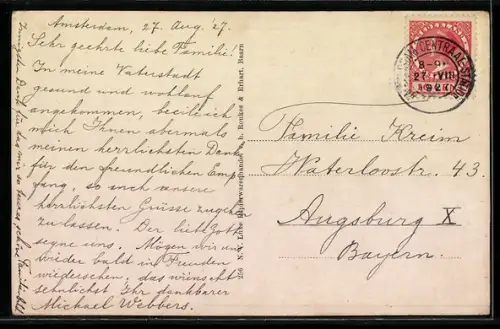 Amsterdam, 27. Aug. '27.
Sehr geehrte liebe Familie!
In meine Vaterstadt
gesund und wohlauf
angekommen, beeile ich
mich Ihnen abermals
meinen herrlichsten Dank
für den freundlichen Emp
fang, so auch unsere
herzlichsten Grüsse zugehen
zu lassen. Der liebe Gott
segne uns. Mögen wir uns
wieder bald in Freuden
wiedersehen, das wünscht
sehnlichst Ihr dankbarer
Michael Webbers.
Innigster Dank für das mir so teures schöne Familienbild
256 N. V. Luxe Papierwarenhandel v. h. Roukes & Erhart, Baarn
NEDERLAND
CENTRAAL-STATION
8-9
27 VIII
1927
Familie Kreim
Waterloostr. 43.
Augsburg X
Bayern.